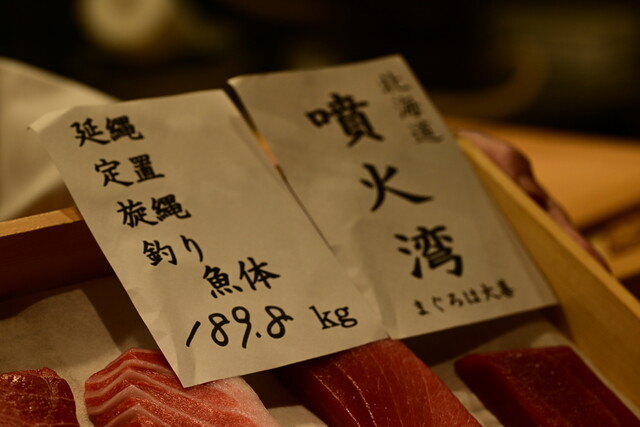 北海道
噴火湾
まぐろは大善
延縄
定置
旋縄
釣り
魚体
189.8 kg